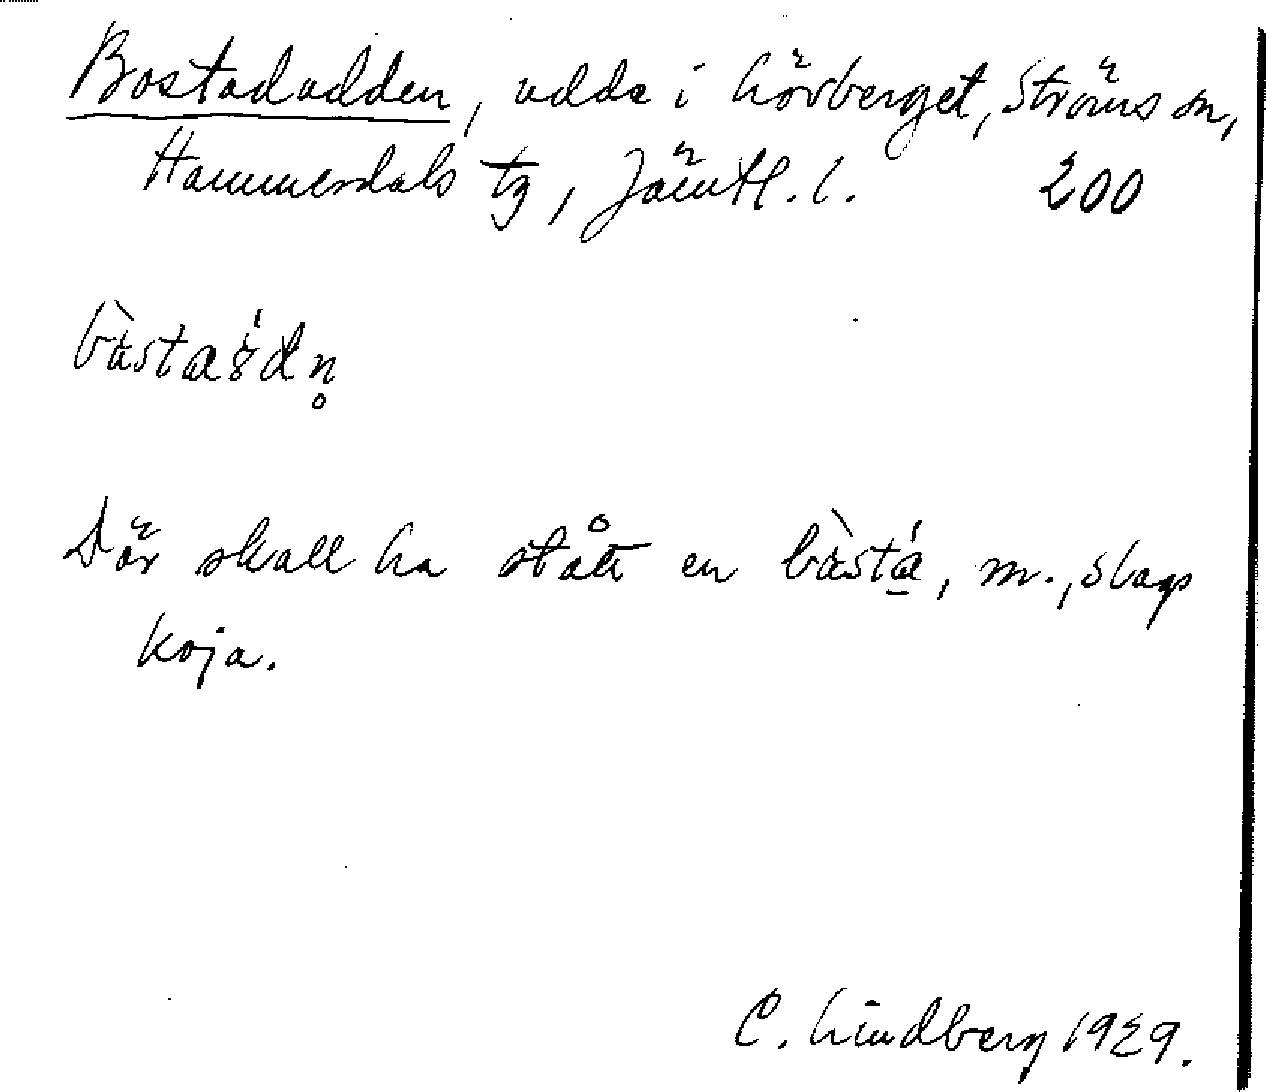 Bostadudden, udde i Lövberget, Ströms sn,
Hammerdals tg, Jämtl. l. 200
Där skall ha stått en bàstá, m., slags
koja.
C. Lindberg 1929.